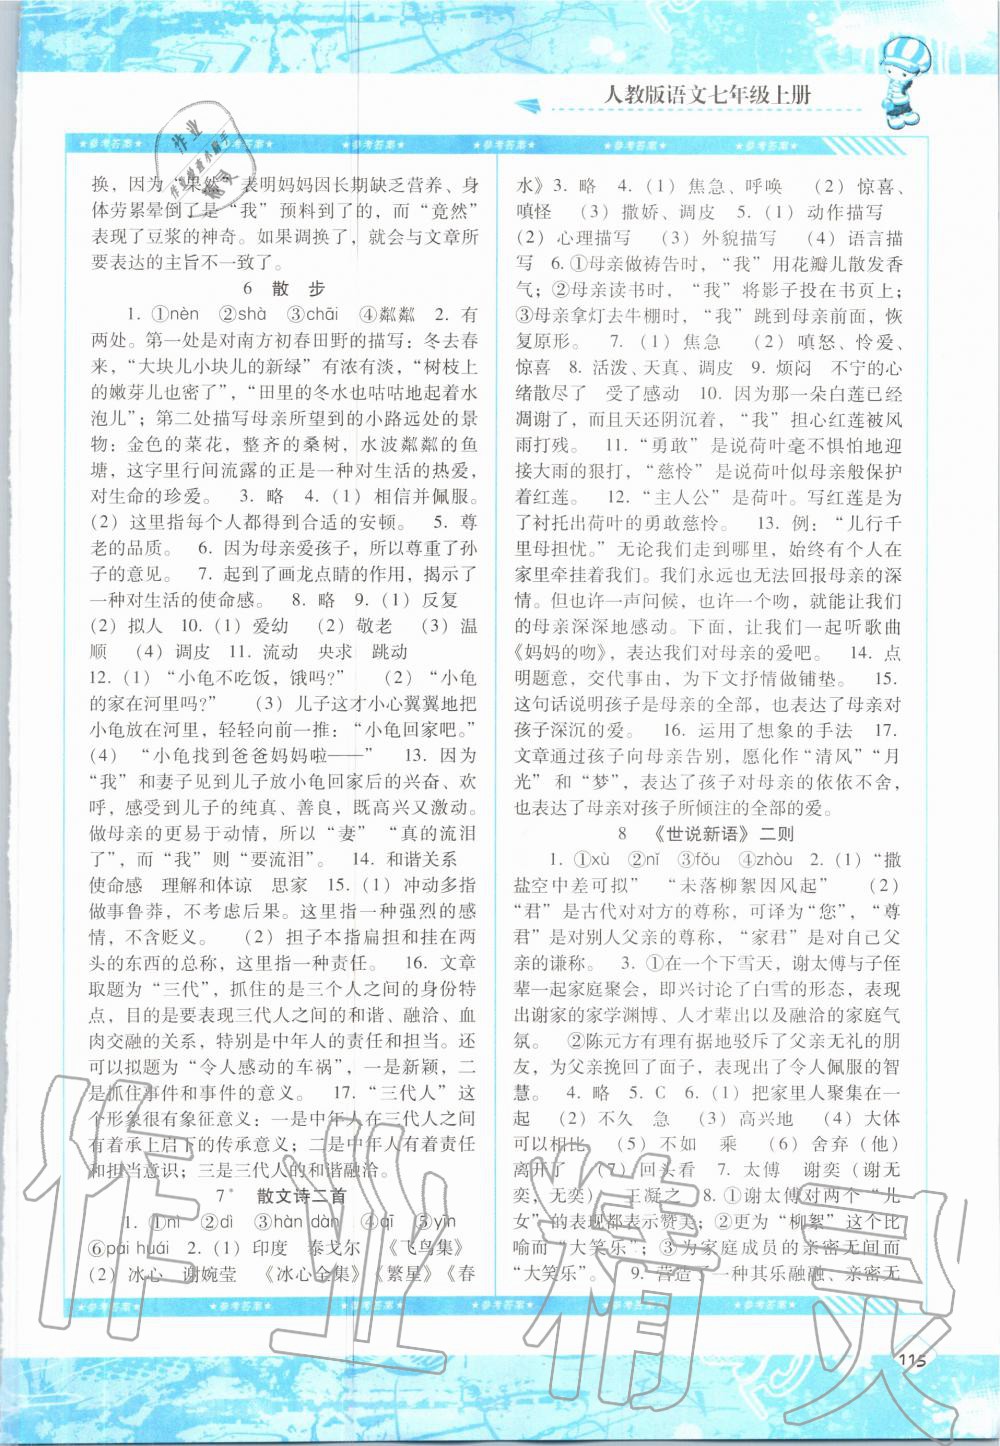 人教版语文七年级上册
★参考答案★ ★参考答案★ ★参考答案★ ★参考答案★ ★参考答案★ ★参考答案★
换，因为“果然”表明妈妈因长期缺乏营养、身
体劳累晕倒了是“我”预料到了的，而“竟然”
表现了豆浆的神奇。如果调换了，就会与文章所
要表达的主旨不一致了。
6 散 步
1. ①nèn ②shà ③chāi ④粼粼 2. 有
两处。第一处是对南方初春田野的描写：冬去春
来，“大块儿小块儿的新绿”有浓有淡，“树枝上
的嫩芽儿也密了”，“田里的冬水也咕咕地起着水
泡儿”；第二处描写母亲所望到的小路远处的景
物：金色的菜花，整齐的桑树，水波粼粼的鱼
塘，这字里行间流露的正是一种对生活的热爱，
对生命的珍爱。 3. 略 4.（1）相信并佩服。
（2）这里指每个人都得到合适的安顿。 5. 尊
老的品质。 6. 因为母亲爱孩子，所以尊重了孙
子的意见。 7. 起到了画龙点睛的作用，揭示了
一种对生活的使命感。 8. 略 9.（1）反复
（2）拟人 10.（1）爱幼 （2）敬老 （3）温
顺 （4）调皮 11. 流动 央求 跳动
12.（1）“小龟不吃饭，饿吗?” （2）“小龟
的家在河里吗?” （3）儿子这才小心翼翼地把
小龟放在河里，轻轻向前一推：“小龟回家吧。”
（4）“小龟找到爸爸妈妈啦——” 13. 因为
“我”和妻子见到儿子放小龟回家后的兴奋、欢
呼，感受到儿子的纯真、善良，既高兴又激动。
做母亲的更易于动情，所以“妻”“真的流泪
了”，而“我”则“要流泪”。 14. 和谐关系
使命感 理解和体谅 思家 15.（1）冲动多指
做事鲁莽，不考虑后果。这里指一种强烈的感
情，不含贬义。 （2）担子本指扁担和挂在两
头的东西的总称，这里指一种责任。 16. 文章
取题为“三代”，抓住的是三个人之间的身份特
点，目的是要表现三代人之间的和谐、融洽、血
肉交融的关系，特别是中年人的责任和承担。还
可以拟题为“令人感动的车祸”，一是新颖，二
是抓住事件和事件的意义。 17. “三代人”这
个形象很有象征意义：一是中年人在三代人之间
有着承上启下的传承意义；二是中年人有着责任
和担当意识；三是三代人的和谐融洽。
7* 散文诗二首
1. ①nì ②dì ③hàn dàn ④qī ⑤yīn
⑥pái huái 2.（1）印度 泰戈尔 《飞鸟集》
（2）冰心 谢婉莹 《冰心全集》《繁星》《春
水》3. 略 4.（1）焦急、呼唤 （2）惊喜、
嗔怪 （3）撒娇、调皮 5.（1）动作描写
（2）心理描写 （3）外貌描写 （4）语言描
写 6. ①母亲做祷告时，“我”用花瓣儿散发香
气；②母亲读书时，“我”将影子投在书页上；
③母亲拿灯去牛棚时，“我”跳到母亲前面，恢
复原形。 7.（1）焦急 （2）嗔怒、怜爱、
惊喜 8. 活泼、天真、调皮 9. 烦闷 不宁的心
绪散尽了 受了感动 10. 因为那一朵白莲已经
凋谢了，而且天还阴沉着，“我”担心红莲被风
雨打残。 11. “勇敢”是说荷叶毫不惧怕地迎
接大雨的狠打，“慈怜”是说荷叶似母亲般保护
着红莲。 12. “主人公”是荷叶。写红莲是为
了衬托出荷叶的勇敢慈怜。 13. 例：“儿行千
里母担忧。”无论我们走到哪里，始终有个人在
家里牵挂着我们。我们永远也无法回报母亲的深
情。但也许一声问候，也许一个吻，就能让我们
的母亲深深地感动。下面，让我们一起听歌曲
《妈妈的吻》，表达我们对母亲的爱吧。 14. 点
明题意，交代事由，为下文抒情做铺垫。 15.
这句话说明孩子是母亲的全部，也表达了母亲对
孩子深沉的爱。 16. 运用了想象的手法 17.
文章通过孩子向母亲告别，愿化作“清风”“月
光”和“梦”，表达了孩子对母亲的依依不舍，
也表达了母亲对孩子所倾注的全部的爱。
8 《世说新语》二则
1. ①xù ②nǐ ③fǒu ④zhòu 2.（1）“撒
盐空中差可拟”“未若柳絮因风起” （2）
“君”是古代对对方的尊称，可译为“您”，“尊
君”是对别人父亲的尊称，“家君”是对自己父
亲的谦称。 3. ①在一个下雪天，谢太傅与子侄
辈一起家庭聚会，即兴讨论了白雪的形态，表现
出谢家的家学渊博、人才辈出以及融洽的家庭气
氛。 ②陈元方有理有据地驳斥了父亲无礼的朋
友，为父亲挽回了面子，表现了令人佩服的智
慧。 4. 略 5. C 6.（1）把家里人聚集在一
起 （2）不久 急 （3）高兴地 （4）大体
可以相比 （5）不如 乘 （6）舍弃（他）
离开了 （7）回头看 7. 太傅 谢奕（谢无
奕，无奕） 王凝之 8. ①谢太傅对两个“儿
女”的表现都表示赞美；②更为“柳絮”这一比
喻而“大笑乐”；③为家庭成员的亲密无间而
“大笑乐”。 9. 营造了一种其乐融融、亲密无
★参考答案★ ★参考答案★ ★参考答案★ ★参考答案★ ★参考答案★ ★参考答案★
115
作业精灵